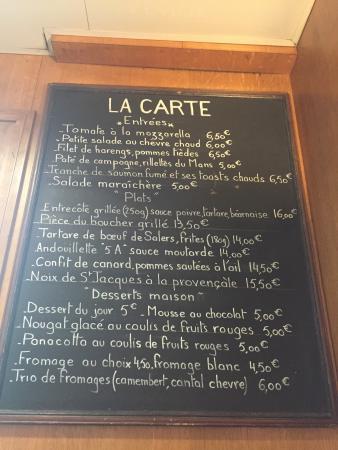 LA CARTE
"Entrées"
- Tomate à la mozzarella 6,50€
- Petite salade au chèvre chaud 6,00€
- Filet de harengs, pommes tièdes 6,50€
- Paté de campagne, rillettes du Mans 5,00€
- Tranche de saumon fumé et ses toasts chauds 6,50€
- Salade maraîchère 5,00€
"Plats"
- Entrecôte grillée (250g) sauce poivre, tartare, béarnaise 16,00€
- Pièce du boucher grillé 13,50€
- Tartare de bœuf de Salers, frites (180g) 14,00€
- Andouillette "5A" sauce moutarde 14,00€
- Confit de canard, pommes sautées à l'ail 14,50€
- Noix de St Jacques à la provençale 15,50€
"Desserts maison"
- Dessert du jour 5€ - Mousse au chocolat 5,00€
- Nougat glacé au coulis de fruits rouges 5,00€
- Panacotta au coulis de fruits rouges 5,00€
- Fromage au choix 4,50, fromage blanc 4,50€
- Trio de fromages (camembert, cantal chevre) 6,00€